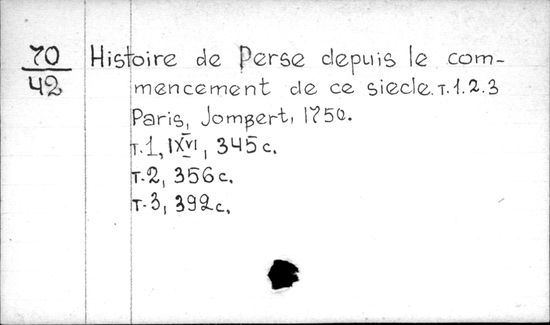 70 Histoire de Perse depuis le com-
42 mencement de ce siecle. т.1.2.3
Paris, Jombert, 1750.
т.1, 345 с.
т.2, 356 с.
т.3, 392 с.